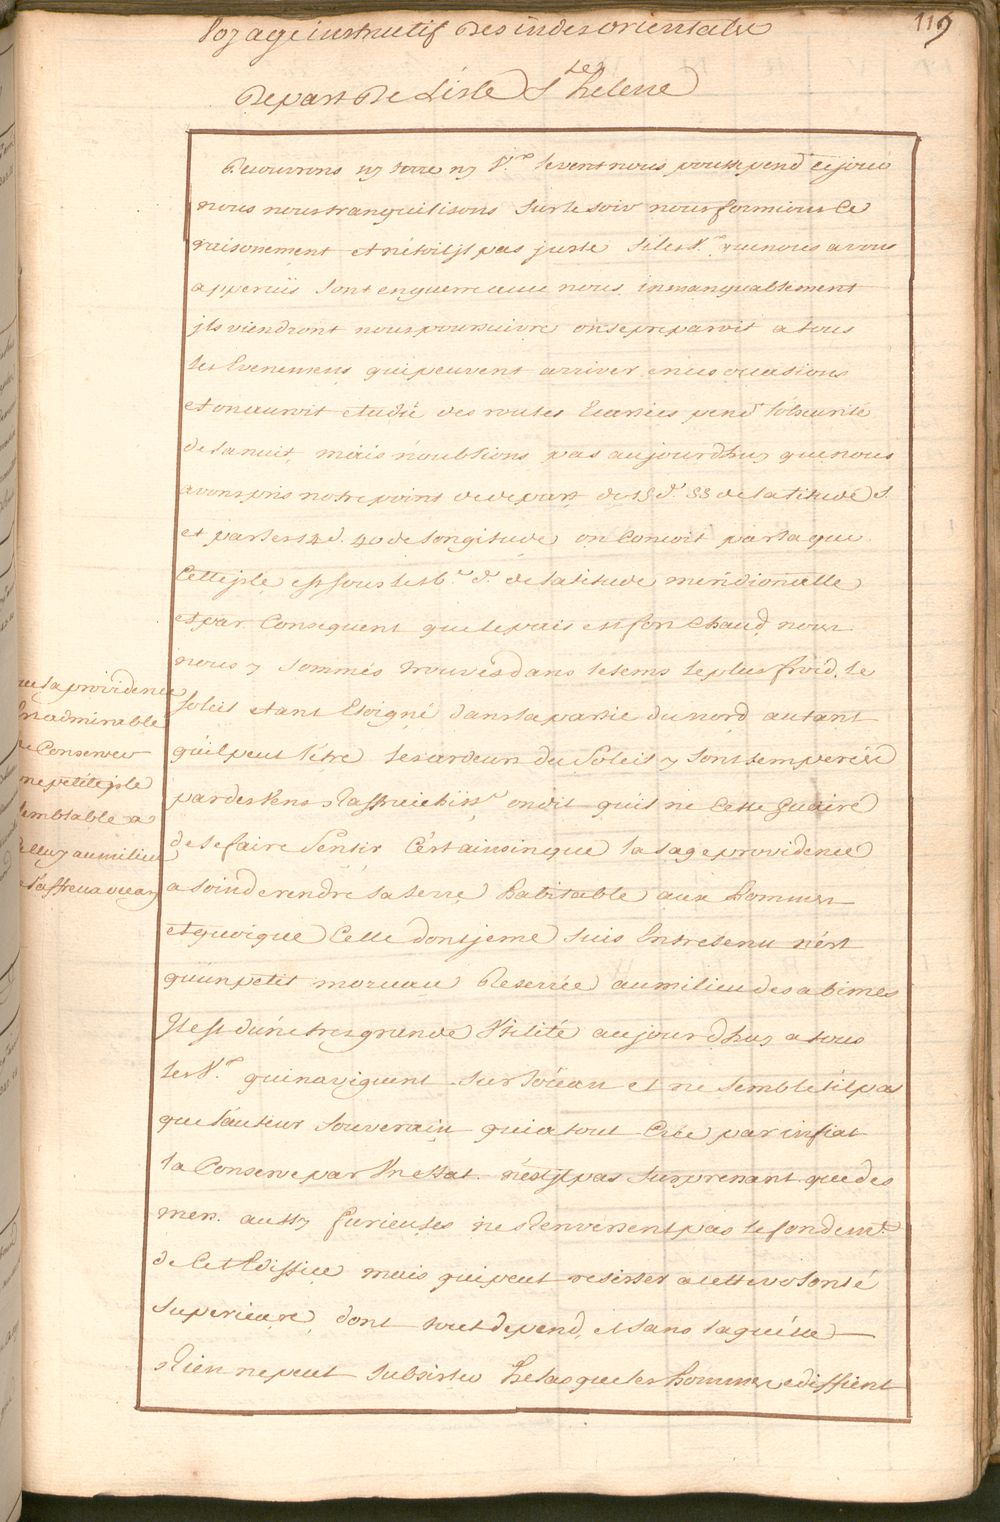 Voyage instructif Des indes orientales
119
Depart De L'isle Ste helene
Decouvrons ny terre ny Vau levent nous poussé pend ce jour
nous nous tranquilisons sur le soir nous formions ce
raisonement et n'étoit jl pas juste si les Vau que nous avons
apperçûs sont en guerre avec nous inmanquablement
jls viendront nous poursuivre on se preparoit a tous
les Evenemens qui peuvent arriver en ces occasions
et on auroit etudié des routes Ecartées pend l'obscurité
de la nuit, mais n'oublions pas aujourdhuy que nous
avons pris notre point de depart de 15 d. 55 de latitude S.
et par les 12 d. 40 de longitude on Conçoit par la que
Cette jsle est sous le 16e d. de latitude meridionalle
et par Consequent que le païs est fort Chaud, nous
nous y sommes trouvés dans le tems le plus froid, le
soleil etant Eloigné dans la partie du nord autant
qu'il peut l'être les ardeurs du Soleil y sont temperées
par des Vens Raffraichisst on dit qu'il ne Cesse Guaire
de se faire Sentir C'est ainsin que la sage providence
a soin de rendre la terre habitable aux hommes
et quoique Celle dont je me suis Entretenu n'est
qu'un petit morceau Reserrée au milieu des abimes
Il est d'une tres grande Vtilité aujourdhuy a tous
les Vau qui naviguent sur l'ocean et ne semble t'il pas
que l'auteur souverain qui a tout Creé par un fiat
la Conserve par Vn estat. n'est jl pas surprenant que des
mers aussy furieuses ne Renversent pas le fondemt
de Cet Ediffice mais qui peut resister a cette volonté
superieure, dont tout depend, et sans laquelle
Rien ne peut subsister helas que les hommes ediffient
que la providence
En admirable
de Conserver
une petite jsle
semblable a
Celle cy au milieu
de l'affreux ocean